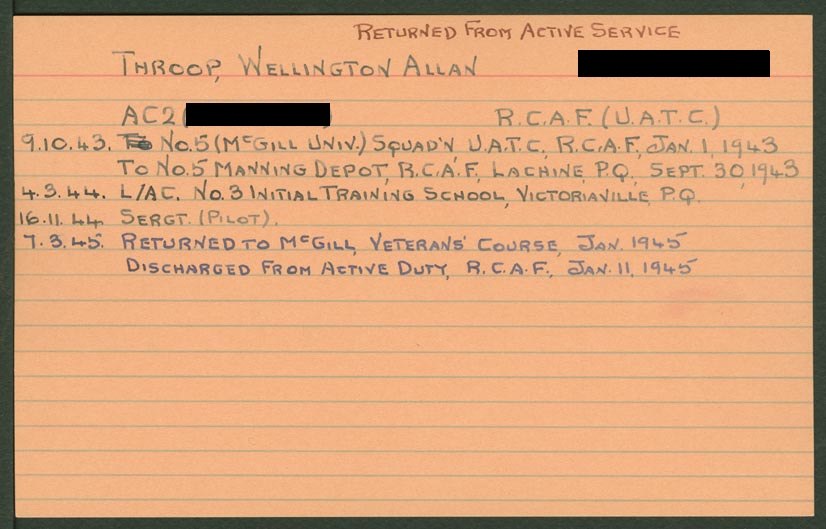 RETURNED FROM ACTIVE SERVICE
THROOP, WELLINGTON ALLAN
AC2 ( ) R.C.A.F. (U.A.T.C.)
9.10.43. To No.5 (McGILL UNIV.) SQUAD'N, U.A.T.C., R.C.A.F., JAN. 1, 1943
TO No.5 MANNING DEPOT, R.C.A.F., LACHINE, P.Q., SEPT. 30, 1943
4.3.44. L/AC. No.3 INITIAL TRAINING SCHOOL, VICTORIAVILLE, P.Q.
16.11.44 SERGT. (PILOT).
7.3.45. RETURNED TO McGILL, VETERANS' COURSE, JAN. 1945
DISCHARGED FROM ACTIVE DUTY, R.C.A.F., JAN. 11, 1945